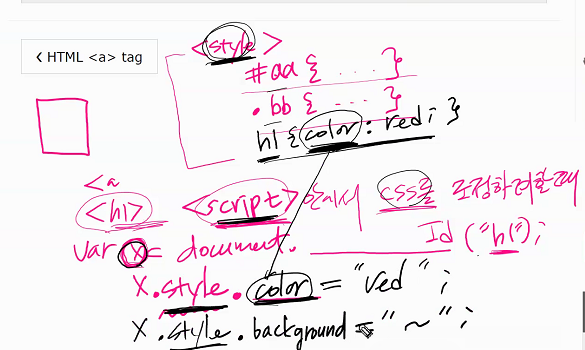 ❮ HTML <a> tag
<style>
#aa { . . . . }
.bb { . . . }
h1 { color : red ; }
<a
<h1>
<script> 안에서 css를 조정하려할때
var x = document. Id ("h1");
x.style.color = "red" ;
x.style.background = " ~ " ;